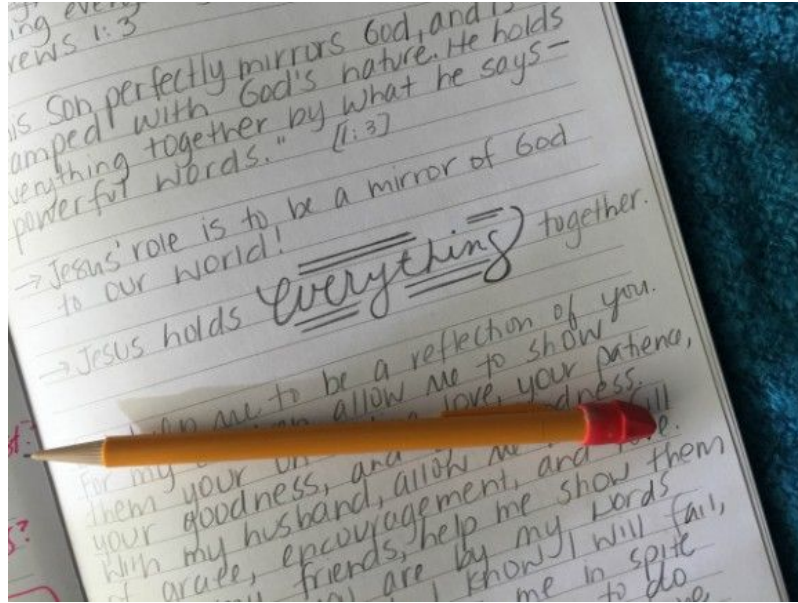 ing eve
rews 1:3
is Son perfectly mirrors God, and is
amped with God's nature. He holds
verything together by what he says—
powerful words." [1:3]
→ Jesus' role is to be a mirror of God
to our world!
→ Jesus holds everything together.
me to be a reflection of you.
For my allow me to show
them your love, your patience,
your goodness, and
With my husband, allow me
of grace, encouragement, and
friends, help me show them
are by my words
I know I will fail,
me in spite
to do
st?
s?